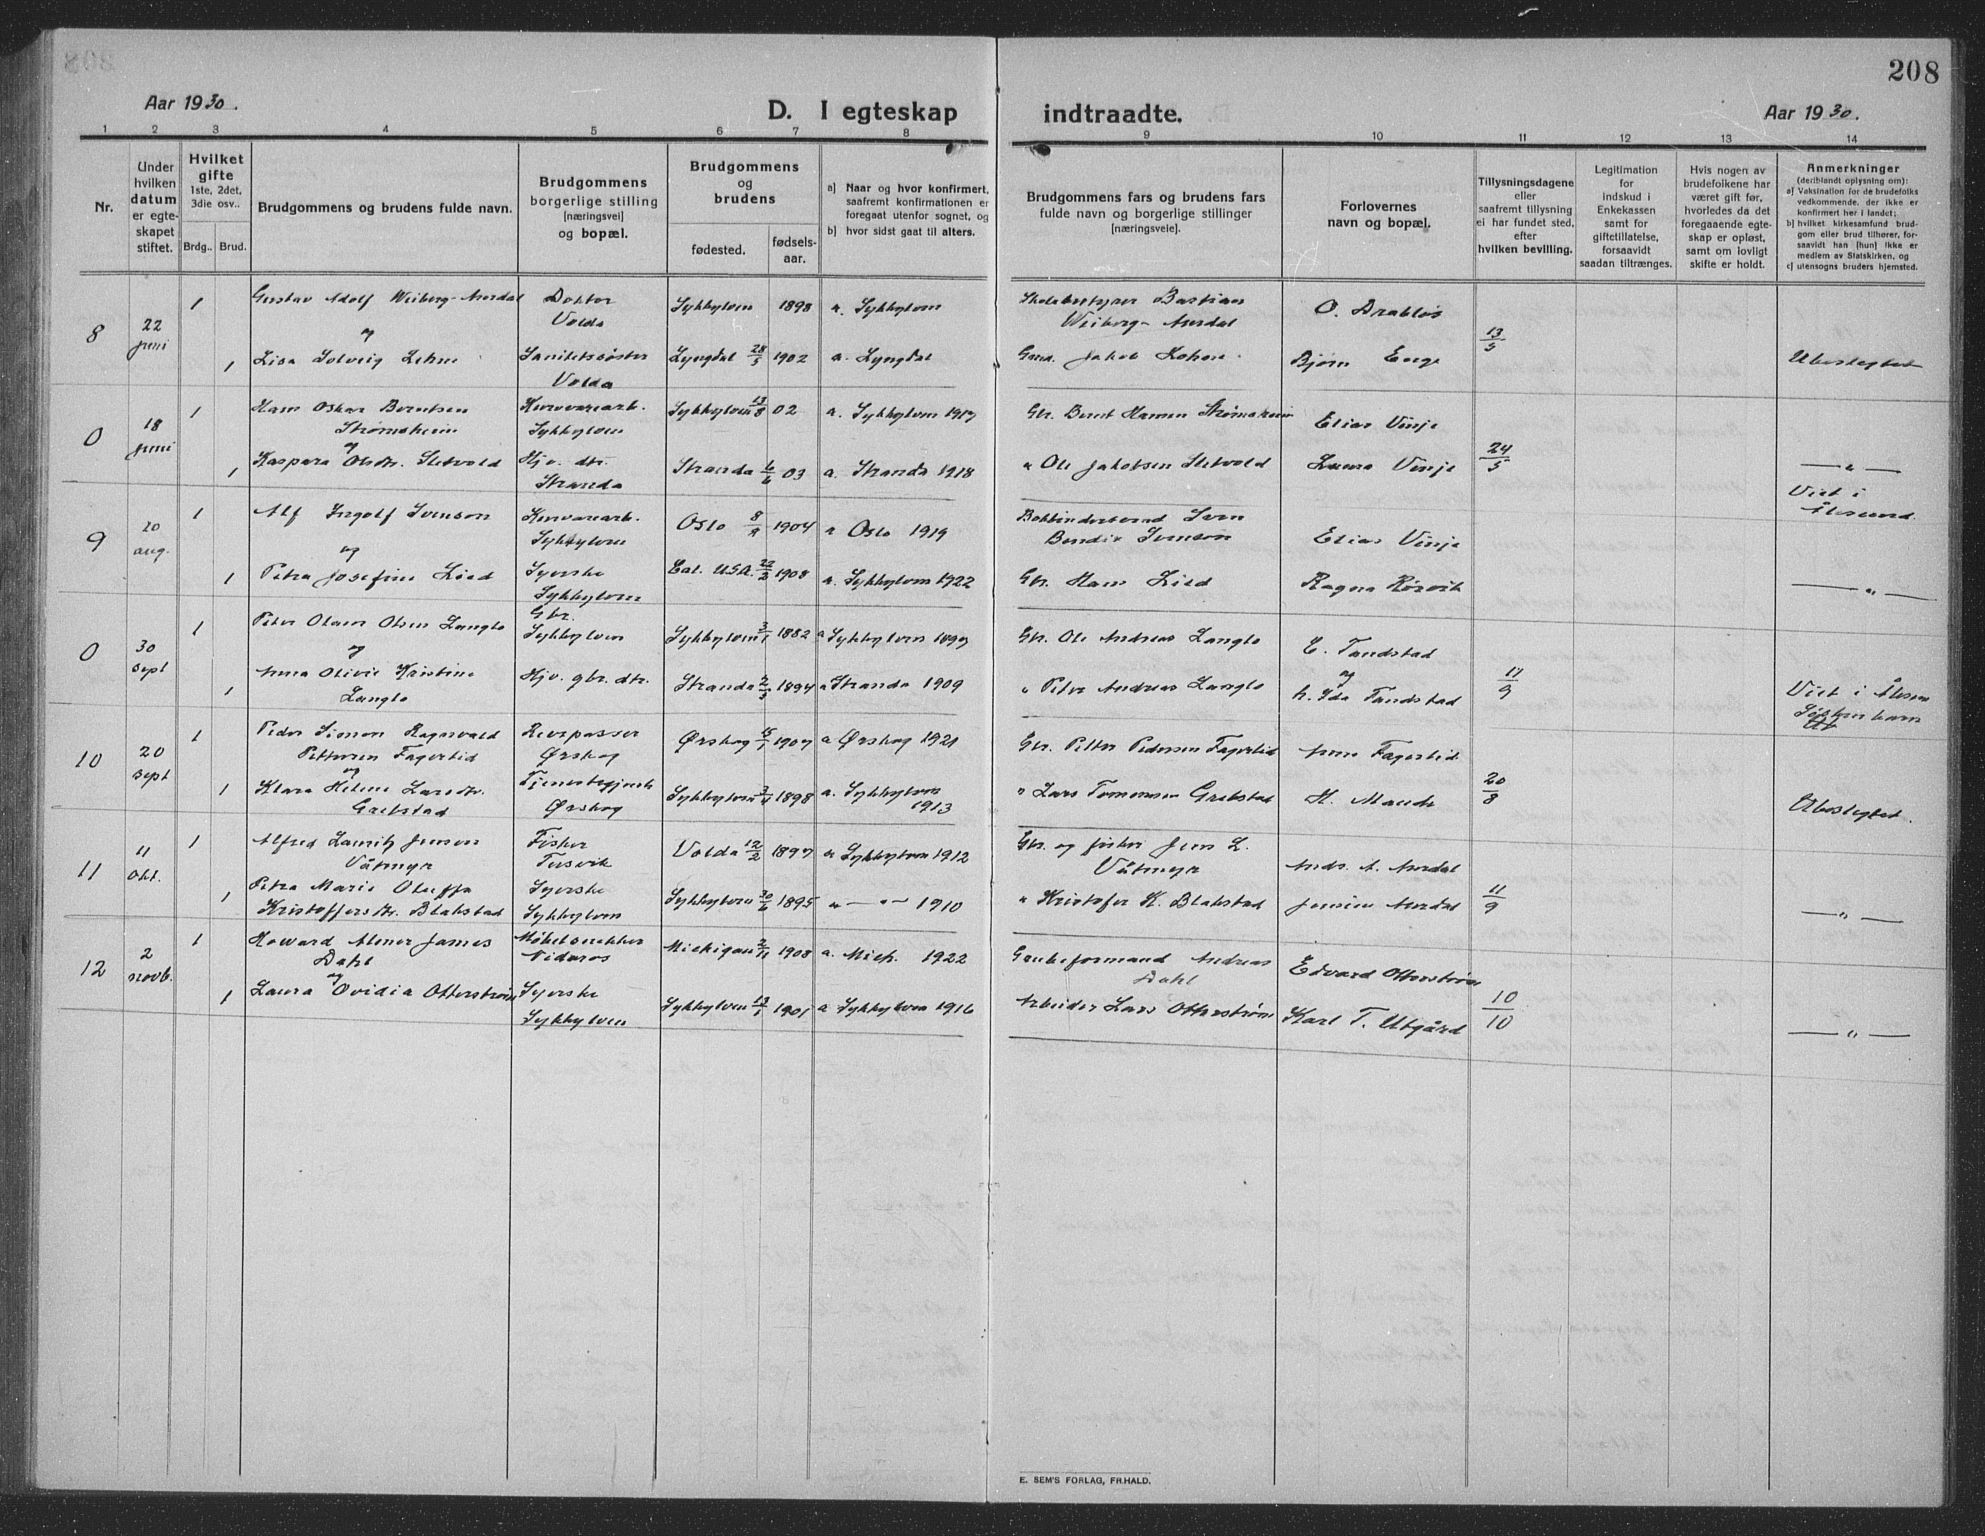 208
Aar 1930.
D. I egteskap indtraadte.
Aar 1930.
1 2 3 4 5 6 7 8 9 10 11 12 13 14
Nr.
Under hvilken datum er egteskapet stiftet.
Hvilket gifte
1ste, 2det, 3die osv..
Brdg.. Brud.
Brudgommens og brudens fulde navn.
Brudgommens borgerlige stilling (næringsvei) og bopæl.
Brudgommens og brudens
fødested.
fødselsaar.
a) Naar og hvor konfirmert, saafremt konfirmationen er foregaat utenfor sognet, og
b) hvor sidst gaat til alters.
Brudgommens fars og brudens fars fulde navn og borgerlige stillinger (næringsveie).
Forlovernes navn og bopæl.
Tillysningsdagene eller saafremt tillysning ei har fundet sted, efter hvilken bevilling.
Legitimation for indskud i Enkekassen samt for giftetillatelse, forsaavidt saadan tiltrænges.
Hvis nogen av brudefolkene har været gift før, hvorledes da det foregaaende egteskap er opløst, samt om lovligt skifte er holdt.
Anmerkninger
(deriblandt oplysning om):
a) Vaksination for de brudefolks vedkommende, der ikke er konfirmert her i landet;
b) hvilket kirkesamfund brudgom eller brud tilhører, forsaavidt han (hun) ikke er medlem av Statskirken, og
c) utensogns bruders hjemsted.
8 22 juni 1 Gustav Adolf Weiberg-Aurdal Doktor Volda Sykkylven 1898 a. Sykkylven Skolebestyrer Bastian Weiberg-Aurdal O. Drabløs 13/5
og
1 Lisa Solveig Lehne Sanitetssøster Volda Lyngdal 28/5 1902 a. Lyngdal Jakob Bjørn Ubeslegtet
0 18 juni 1 Hans Oskar Berntsen Strømsheim Sykkylven Sykkylven 13/8 02 a. Sykkylven 1917 Gbr. Bernt Hansen Strømsheim Elias Vinje 24/5
og
1 Kaspara Olsdtr. Sletvold Hjv. dtr. Stranda Stranda 6/6 03 a. Stranda 1918 " Ole Jakobsen Sletvold Laura Vinje — " —
Viet i Ålesund.
9 20 aug. 1 Alf Ingolf Svenson Sykkylven Oslo 8/9 1904 a Oslo 1919 Sven Bendix Svenson Elias Vinje
og
1 Petra Josefine Lied Syerske Sykkylven Cal. U.S.A. 22/2 1908 a. Sykkylven 1922 Gbr. Hans Lied Ragna Rørvik — " —
0 30 sept 1 Peter Olaus Olsen Langlo Gbr. Sykkylven Sykkylven 3/1 1882 a Sykkylven 1897 Gbr. Ole Andreas Langlo E. Tandstad 11/9
og
1 Anna Olivie Kristine Langlo Hjv. gbr. dtr. Stranda 2/5 1894 a Stranda 1909 " Peter Andreas Langlo og h. Ida Tandstad Viet i Ålesund Søskenbarn
10 20 sept 1 Peder Simon Ragnvald Pettersen Fagerlid Revepasser Ørskog Ørskog 15/1 1907 a Ørskog 1921 Gbr. Petter Pedersen Fagerlid Anne Fagerlid 20/8
og
1 Klara Helene Larsdtr. Grebstad Ørskog Sykkylven 1898 a. Sykkylven 1913 " Lars Tomassen Grebstad Ubeslegtet.
11 11 okt. 1 Alfred Lauritz Jensen Våtmyr Fisker Tusvik Volda 12/2 1897 a Sykkylven 1912 Gbr. og fisker Jens L. Våtmyr Ands. A. Aurdal 11/9
1 Petra Marie Oluffa Kristoffersdtr. Blakstad Syerske Sykkylven Sykkylven 30/6 1895 " — " — 1910 " Kristofer K. Blakstad Jensine Aurdal — " —
12 2 novb. 1 Howard Almer James Dahl Møbelsnekker Nidaros Michigan 2/11 1908 a. Mich. 1922 Grubeformand Andreas Dahl Edvard Otterstrøm 10/10
og
1 Laura Ovidia Otterstrøm Syerske Sykkylven Sykkylven 13/1 1901 a Sykkylven 1916 Arbeider Lars Otterstrøm Karl T. Utgård — " —
E. SEM'S FORLAG, FR.HALD.